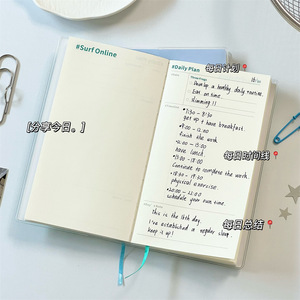 #Surf Online
#Daily Plan
每日计划
Develop a healthy daily routine.
Eat on time
Slimming!!
[分享今日。]
7:30 - 8:30
get up & have breakfast.
9:00 - 12:00
finish the work.
每日时间线
12:00
have lunch
13:00 - 18:00
Continue to complete the work.
18:30 - 19:30
physical exercise.
20:00 - 22:00
schedule your own time.
每日总结
this is the 18th day.
I've established a regular sleep
keep it up!